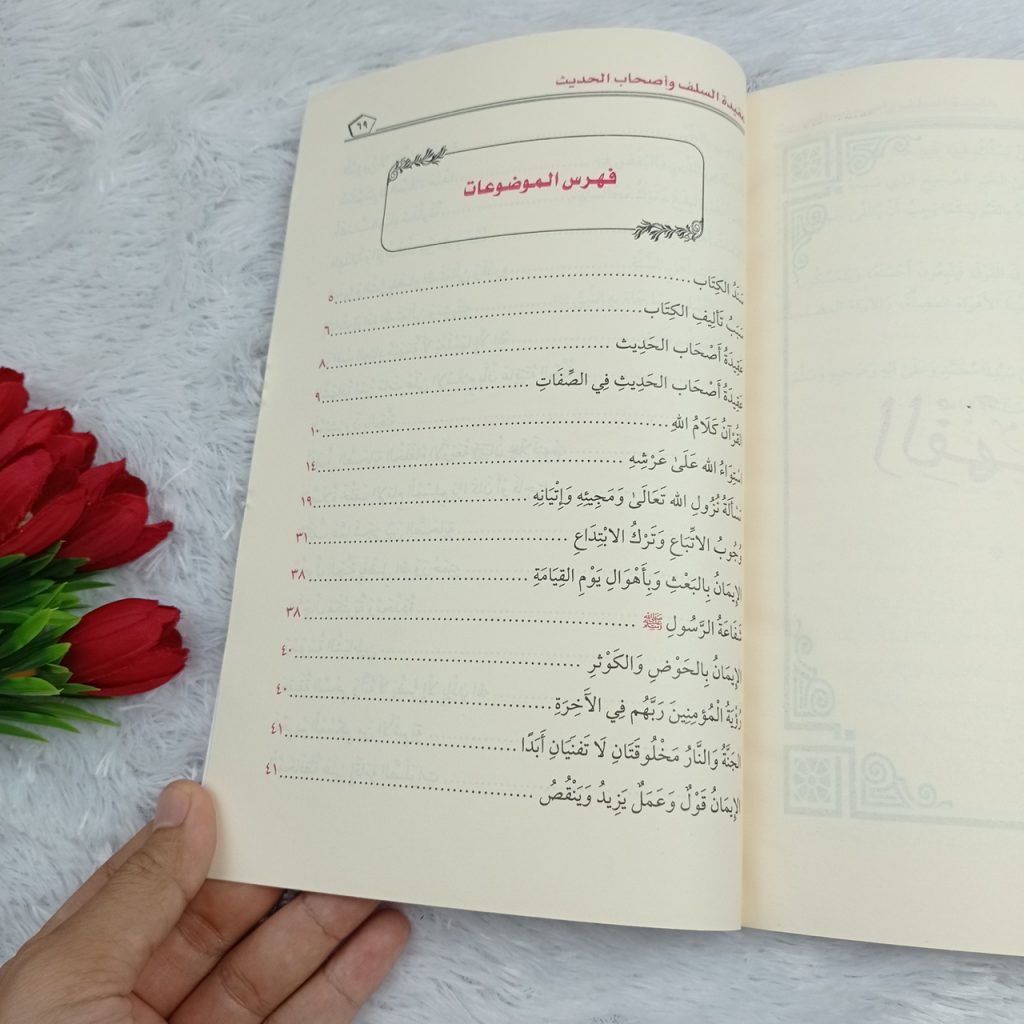 عقيدة السلف وأصحاب الحديث
٦٩
فهرس الموضوعات
سَنَدُ الكِتَابِ ........ ٥
سَبَبُ تَأْلِيفِ الكِتَابِ ........ ٦
عَقِيدَةُ أَصْحَابِ الحَدِيث ........ ٨
عَقِيدَةُ أَصْحَابِ الحَدِيثِ فِي الصِّفَاتِ ........ ٩
القُرْآنُ كَلَامُ اللهِ ........ ١٠
اسْتِوَاءُ الله عَلَىٰ عَرْشِهِ ........ ١٤
مَسْأَلَةُ نُزُولِ الله تَعَالَىٰ وَمَجِيئِهِ وَإِتْيَانِهِ ........ ١٩
وُجُوبُ الاتِّبَاعِ وَتَرْكُ الابْتِدَاعِ ........ ٣١
الإِيمَانُ بِالبَعْثِ وَبِأَهْوَالِ يَوْمِ القِيَامَةِ ........ ٣٨
شَفَاعَةُ الرَّسُولِ ﷺ ........ ٣٨
الإِيمَانُ بِالحَوْضِ وَالكَوْثَرِ ........ ٤٠
رُؤْيَةُ الْمُؤْمِنِينَ رَبَّهُم فِي الآخِرَةِ ........ ٤٠
الجَنَّةُ وَالنَّارُ مَخْلُوقَتَانِ لَا تَفنَيَانِ أَبَدًا ........ ٤١
الإِيمَانُ قَوْلٌ وَعَمَلٌ يَزِيدُ وَيَنْقُصُ ........ ٤١